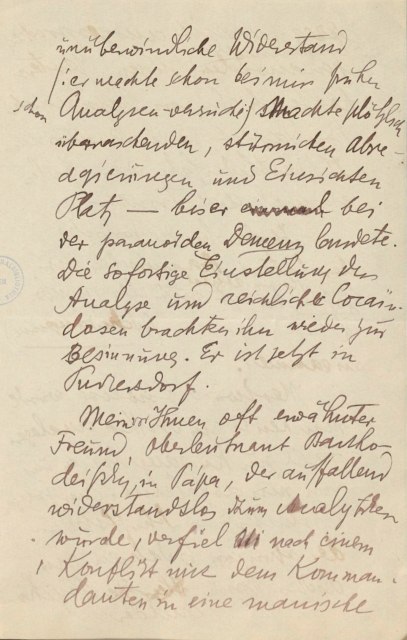 unüberwindliche Widerstand
/: er machte schon bei mir früher
schon Analysen-versuche/ machte plötzlich
überraschenden, stürmichen Abre-
agierungen und Einsichten
Platz — bis er bei
der paranoiden Demenz landete.
Die sofortige Einstellung der
Analyse und reichliche Cocain-
dosen brachten ihn wieder zur
Besinnung. Er ist jetzt in
Inzersdorf.
Mein Ihnen oft erwähnter
Freund, Oberleutnant
in Pápa, der auffallend
widerstandslos zum Analytiker
wurde, verfiel nach einem
Konflikt mit dem Komman-
danten in eine manische